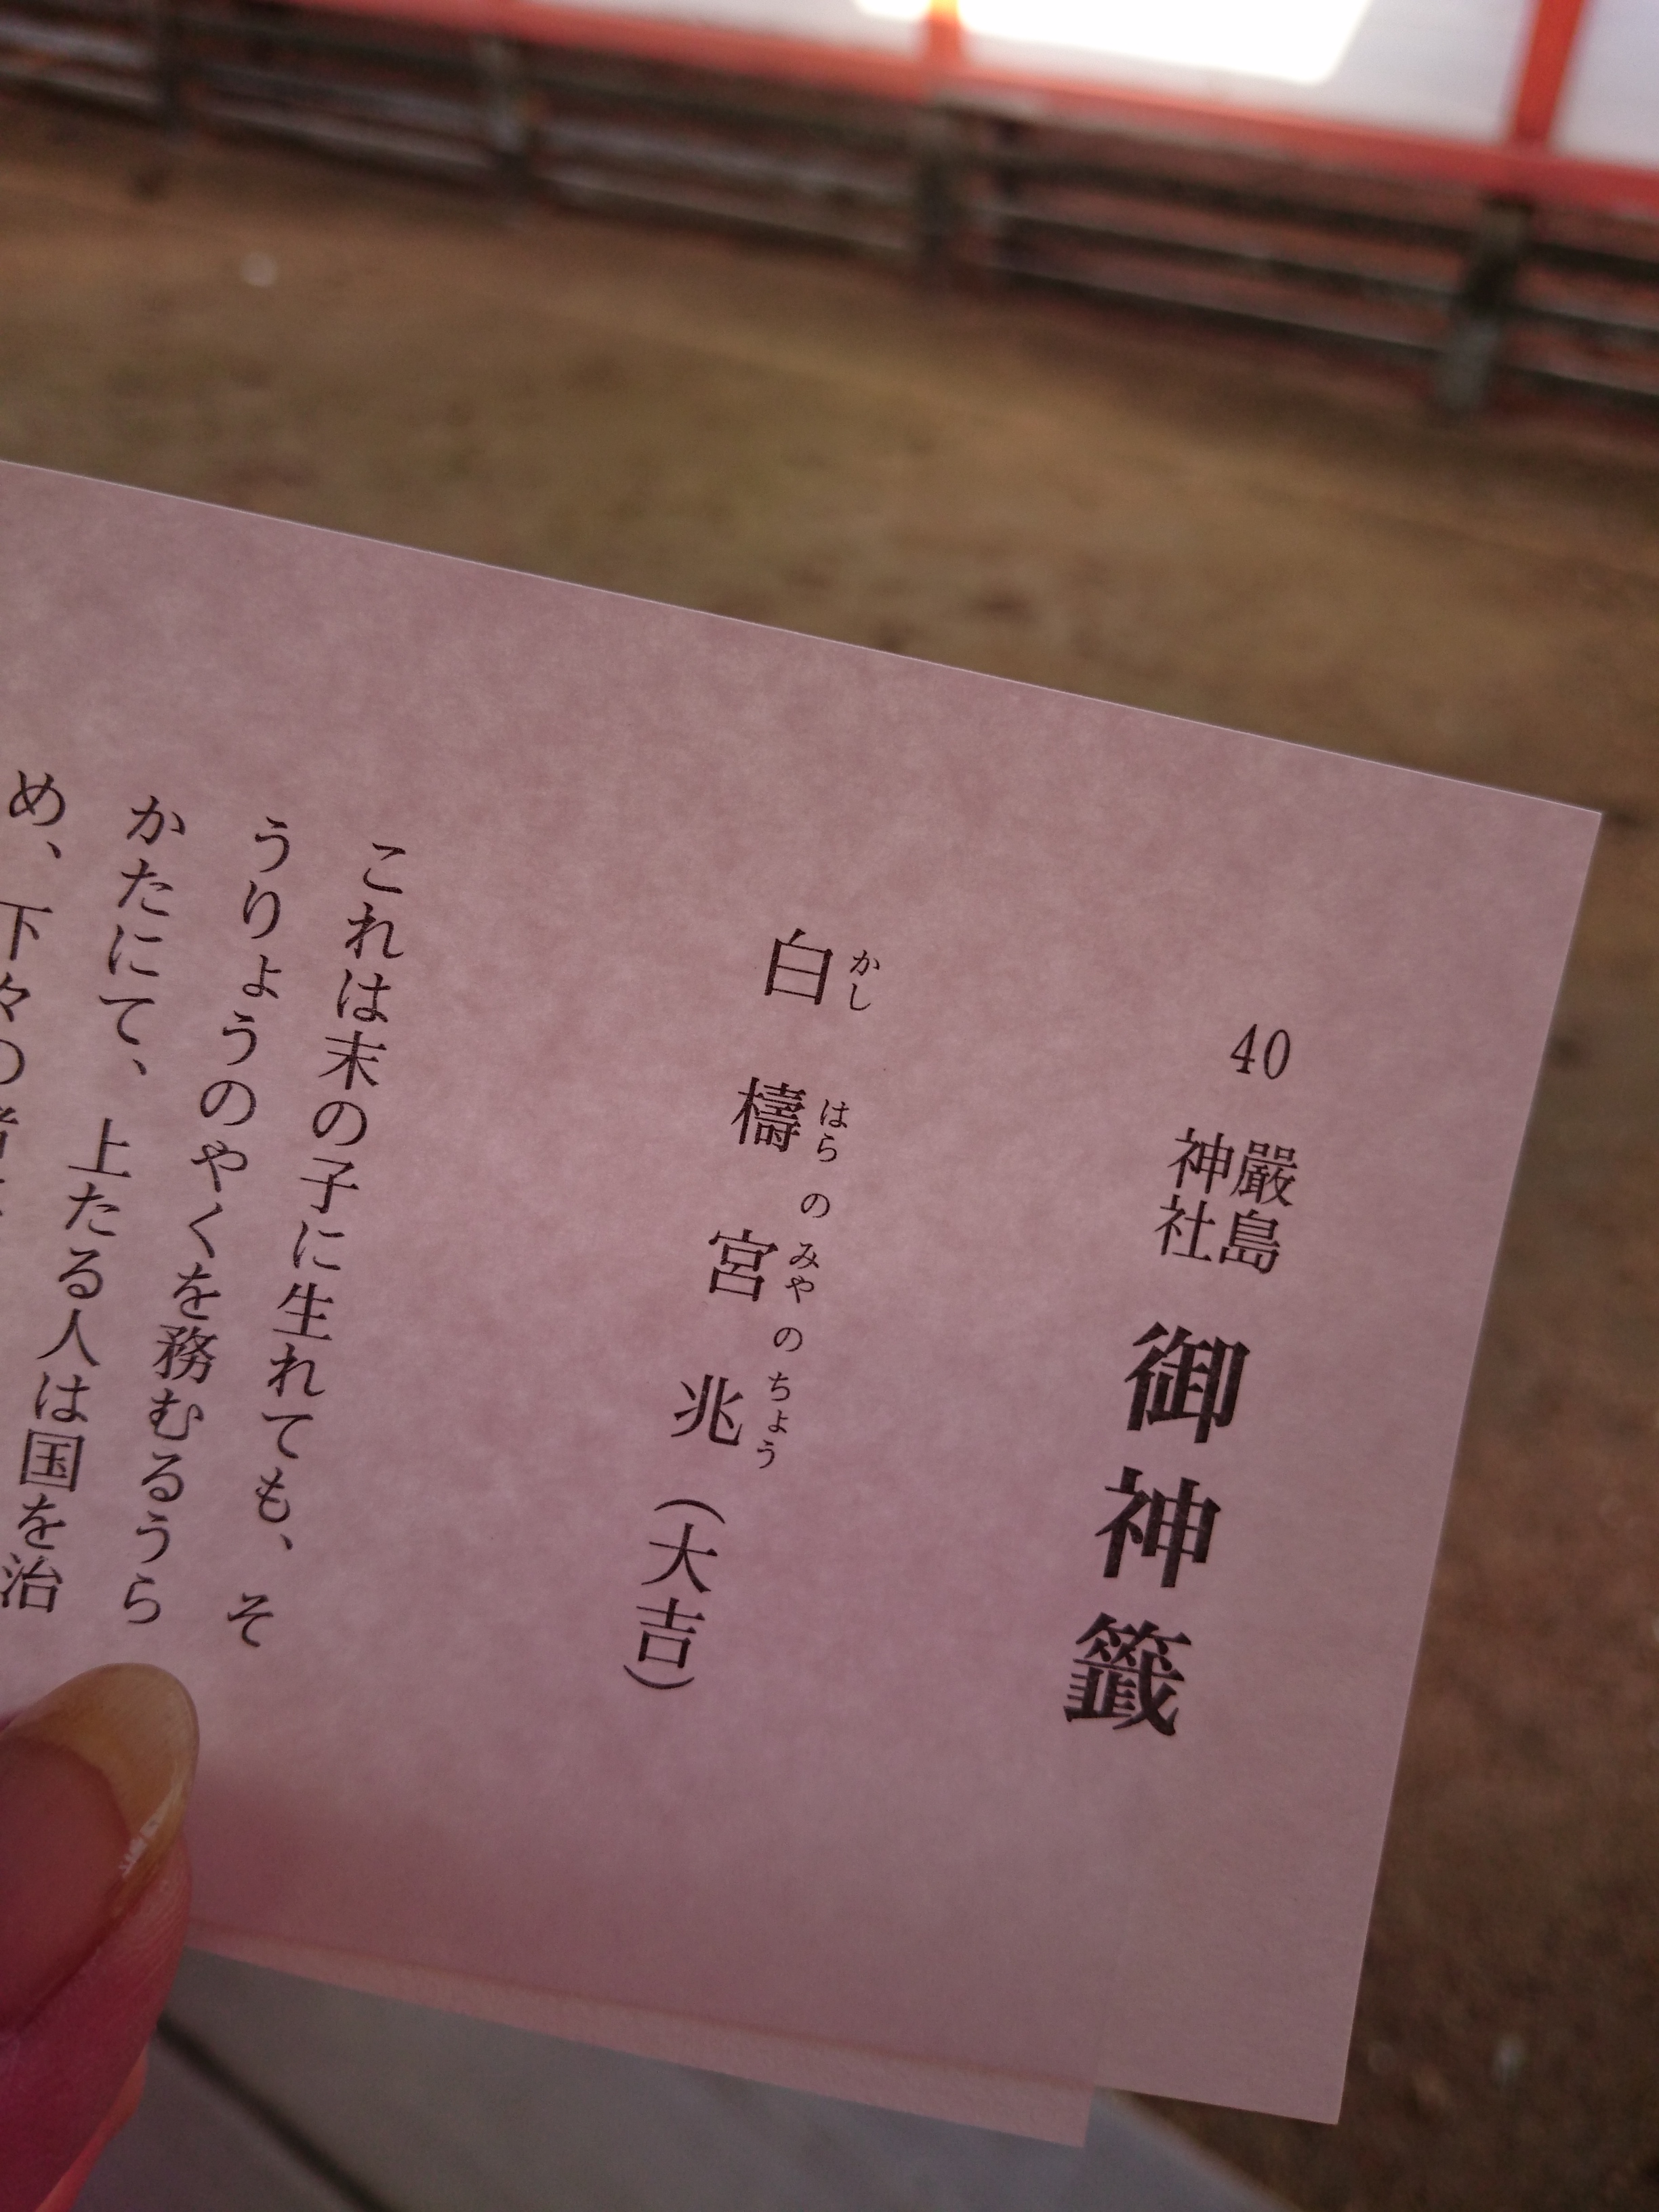 40 嚴島神社 御神籤
白檮宮兆(大吉)
かしはらのみやのちょう
これは末の子に生れても、そ
うりょうのやくを務むるうら
かたにて、上たる人は国を治
め、下々の者